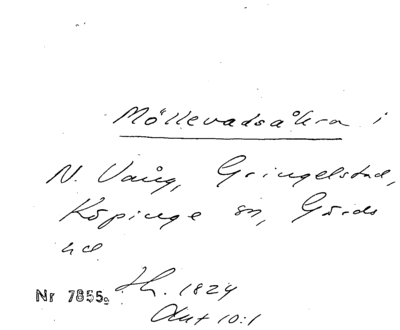 Möllevadsåkra i
N. Vång, Gringelstad,
Köpinge sn, Gärds
hd
Sk. 1824
Akt 10:1
Nr 7855